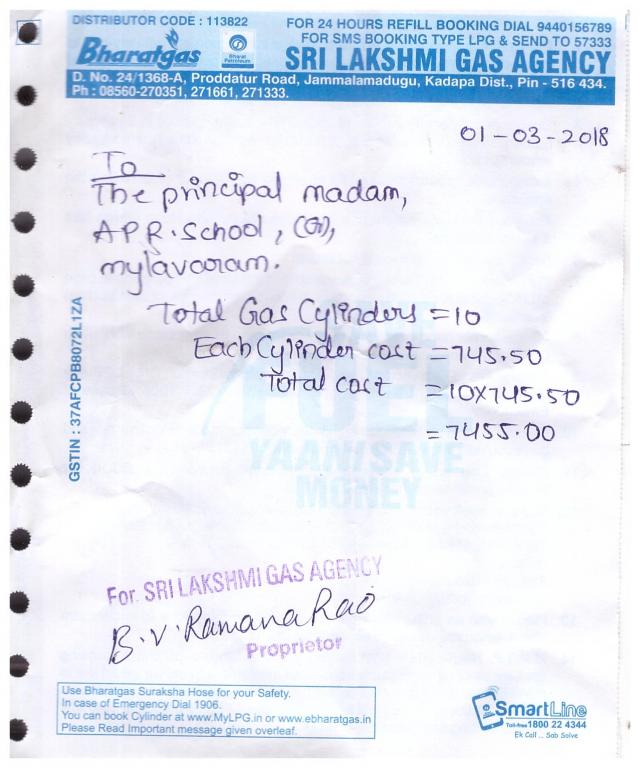 DISTRIBUTOR CODE : 113822
FOR 24 HOURS REFILL BOOKING DIAL 9440156789
FOR SMS BOOKING TYPE LPG & SEND TO 57333
Bharatgas
Bharat
Petroleum
SRI LAKSHMI GAS AGENCY
D. No. 24/1368-A, Proddatur Road, Jammalamadugu, Kadapa Dist., Pin - 516 434.
Ph : 08560-270351, 271661, 271333.
01-03-2018
To
The principal madam,
A.P.R. School, (G),
mylavaram.
Total Gas Cylinders = 10
Each Cylinder cost = 745.50
Total cost = 10x745.50
= 7455.00
GSTIN : 37AFCPB8072L1ZA
SAVE
FUEL
YAANI SAVE
MONEY
For. SRI LAKSHMI GAS AGENCY
B.V. Ramana Rao
Proprietor
Use Bharatgas Suraksha Hose for your Safety.
In case of Emergency Dial 1906.
You can book Cylinder at www.MyLPG.in or www.ebharatgas.in
Please Read Important message given overleaf.
SmartLine
Toll-free 1800 22 4344
Ek Call ... Sab Solve